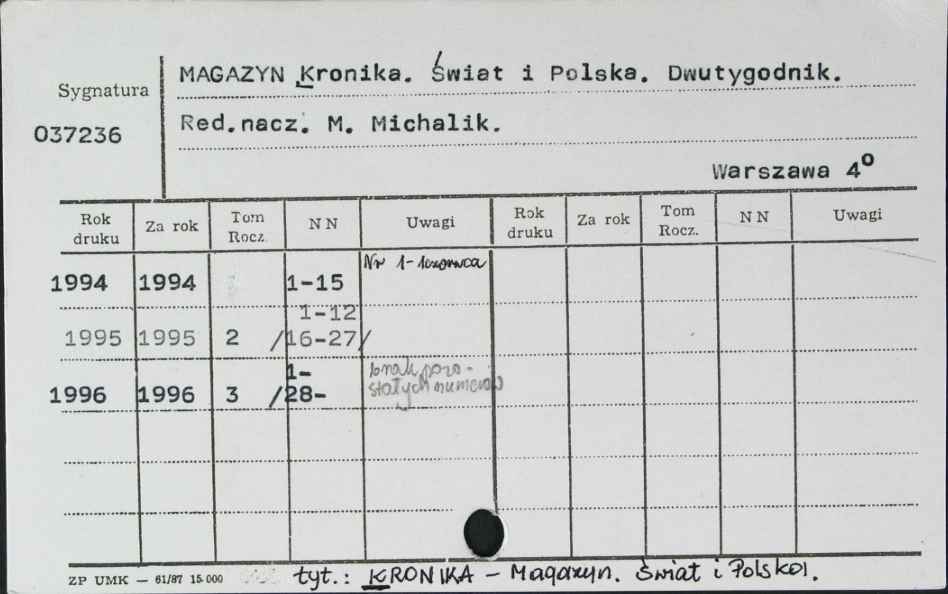 MAGAZYN Kronika. Świat i Polska. Dwutygodnik.
Sygnatura
037236
Red.nacz. M. Michalik.
Warszawa 4º
Rok druku Za rok Tom Rocz. NN Uwagi Rok druku Za rok Tom Rocz. NN Uwagi
1994 1994 1-15 Nr 1 - 1czerwca
1-12
1995 1995 2 /16-27/
1- brak pozo-
1996 1996 3 /28- stałych numerów
ZP UMK — 61/87 15 000
tyt.: KRONIKA - Magazyn. Świat i Polska.